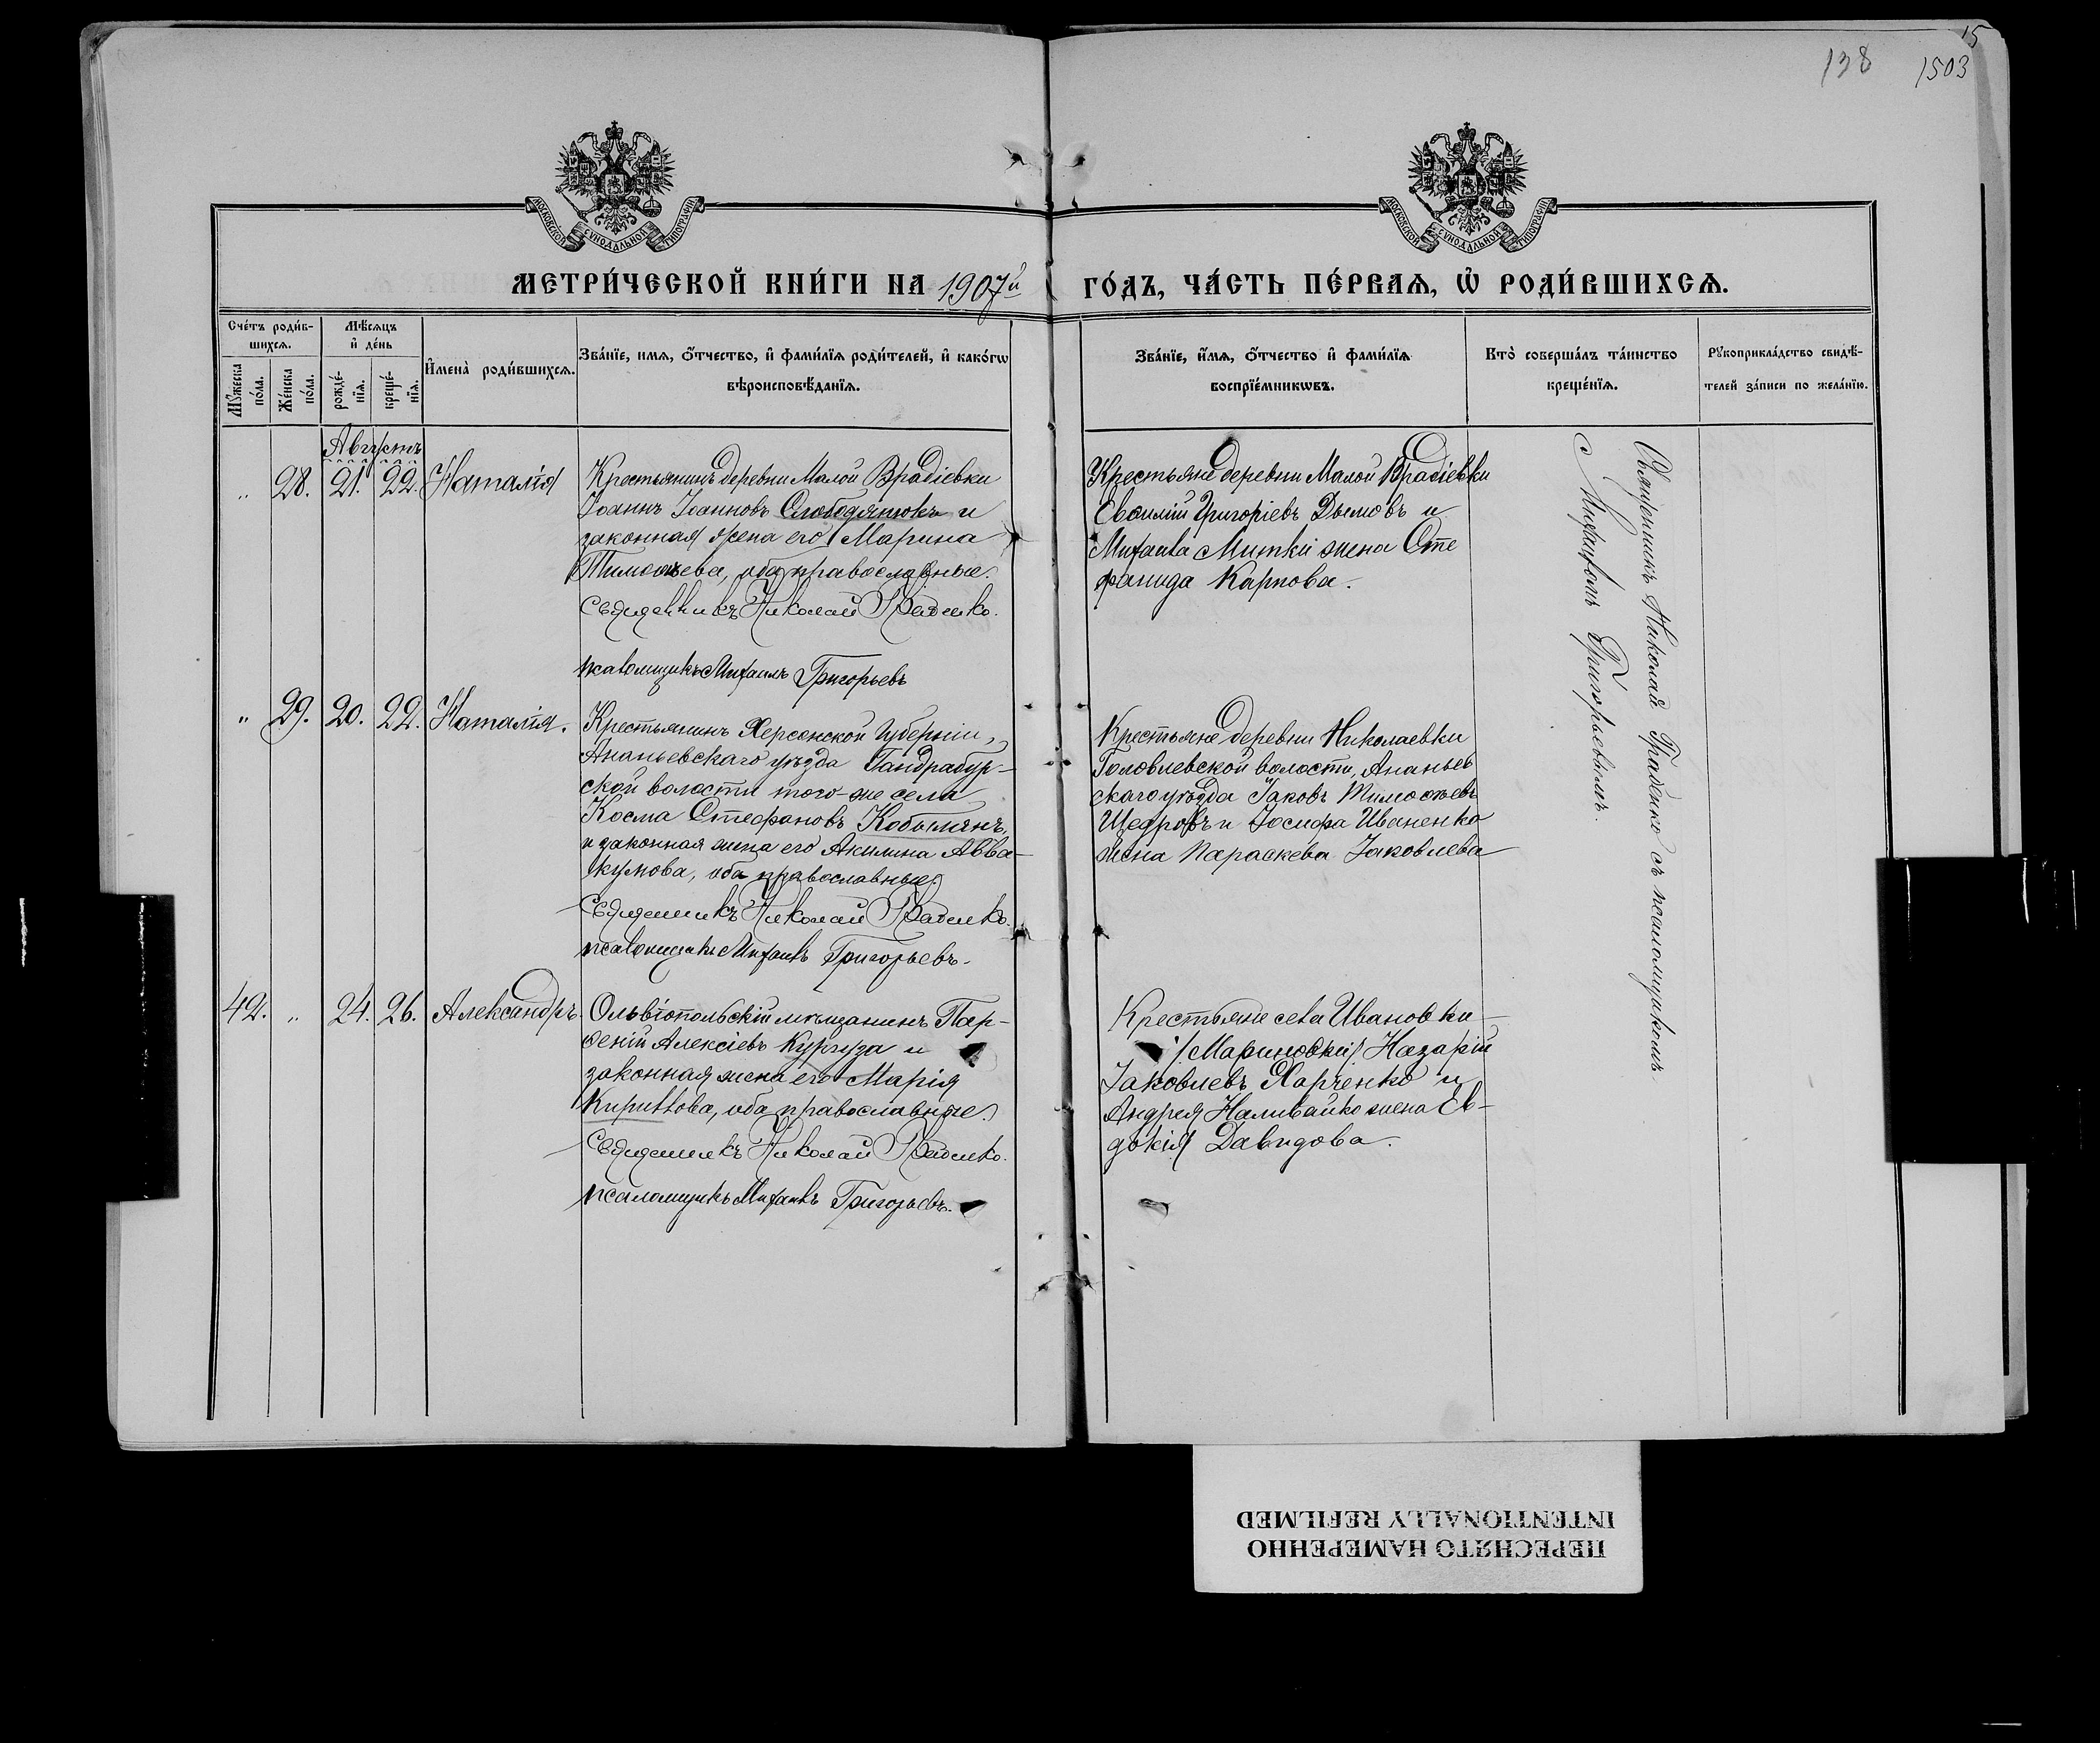 15
138 1503
МОСКОВСКОЙ СѴНОДАЛЬНОЙ ТИПОГРАФІИ
МОСКОВСКОЙ СѴНОДАЛЬНОЙ ТИПОГРАФІИ
МЕТРИ́ЧЕСКОЙ КНИ́ГИ НА 1907й ГО́ДЪ, ЧА́СТЬ ПЕ́РВАѦ, Ѡ҆ РОДИ́ВШИХСѦ.
Сче́тъ роди́в-
шихсѧ.
Мꙋ́жеска по́ла.
Же́нска по́ла.
Мѣ́сѧцъ
и҆ де́нь
рожде́-нїѧ.
креще́-нїѧ.
И҆мена̀ роди́вшихсѧ.
Зва́нїе, имѧ, ѻ҆́тчество, и҆ фами́лїѧ роди́телей, и҆ како́гѡ
вѣроисповѣ́данїѧ.
Зва́нїе, и҆́мѧ, ѻ҆́тчество и҆ фами́лїѧ
воспрїе́мникѡвъ.
Кто̀ соверша́лъ та́инство
креще́нїѧ.
Рꙋкоприкла́дство свидѣ́-
телей за́писи по жела́нїю.
Августъ
" 28. 21. 22. Наталія
Крестьянинъ деревни Малой Врадіевки
Іоаннъ Іоанновъ Слободянюкъ и
законная жена его Марина
Тимоѳеева, оба православные.
Священникъ Николай
псаломщикъ Михаилъ Григорьевъ
Крестьяне деревни Малой Врадіевки
Евѳимій Григоріевъ Дымовъ и
Михаила Митки жена Сте
фанида Карпова.
" 29. 20. 22. Наталія.
Крестьянинъ Херсонской Губерніи,
Ананьевскаго уѣзда Гандрабур-
ской волости того-же села
Косма Стефановъ Кобылянъ,
и законная жена его Акилина Авва-
кумова, оба православные.
Священникъ Николай
псаломщикъ Михаилъ Григорьевъ.
Крестьяне деревни Николаевки
Головлевской волости, Ананьев
скаго уѣзда Іаковъ Тимоѳеевъ
Щедровъ и Іосифа Иваненко
жена Параскева Іаковлева
42. " 24. 26. Александръ.
Ольвіопольскій мѣщанинъ Пар-
ѳеній Алексіевъ Кургуза и
законная жена его Марія
Кириллова, оба православные.
Священникъ Николай
псаломщикъ Михаилъ Григорьевъ.
Крестьяне села Ивановки
/Мариновки/ Назарій
Іаковлевъ Харченко и
Андрея Наливайко жена Ев-
докія Давидова.
Священникъ Николай съ псаломщикомъ
Михаиломъ Григорьевымъ.
ПЕРЕСНЯТО НАМЕРЕННО
INTENTIONALLY REFILMED